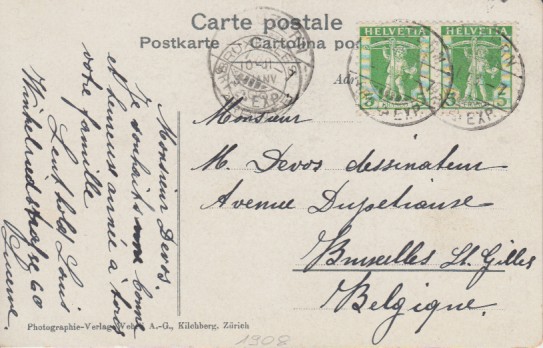 Carte postale
Postkarte Cartolina
HELVETIA HELVETIA
5 5
EXP. EXP.
Monsieur
M. Devos dessinateur
Avenue Dupetiause
Bruxelles St. Gilles
Belgique.
Monsieur Devos.
Je souhait une bonne
et heureus année à tous
votre famille
Luthold Louis
Winkelriedstrasse 60
Luzerne.
Photographie-Verlag Wehrli A.-G., Kilchberg, Zürich
1908